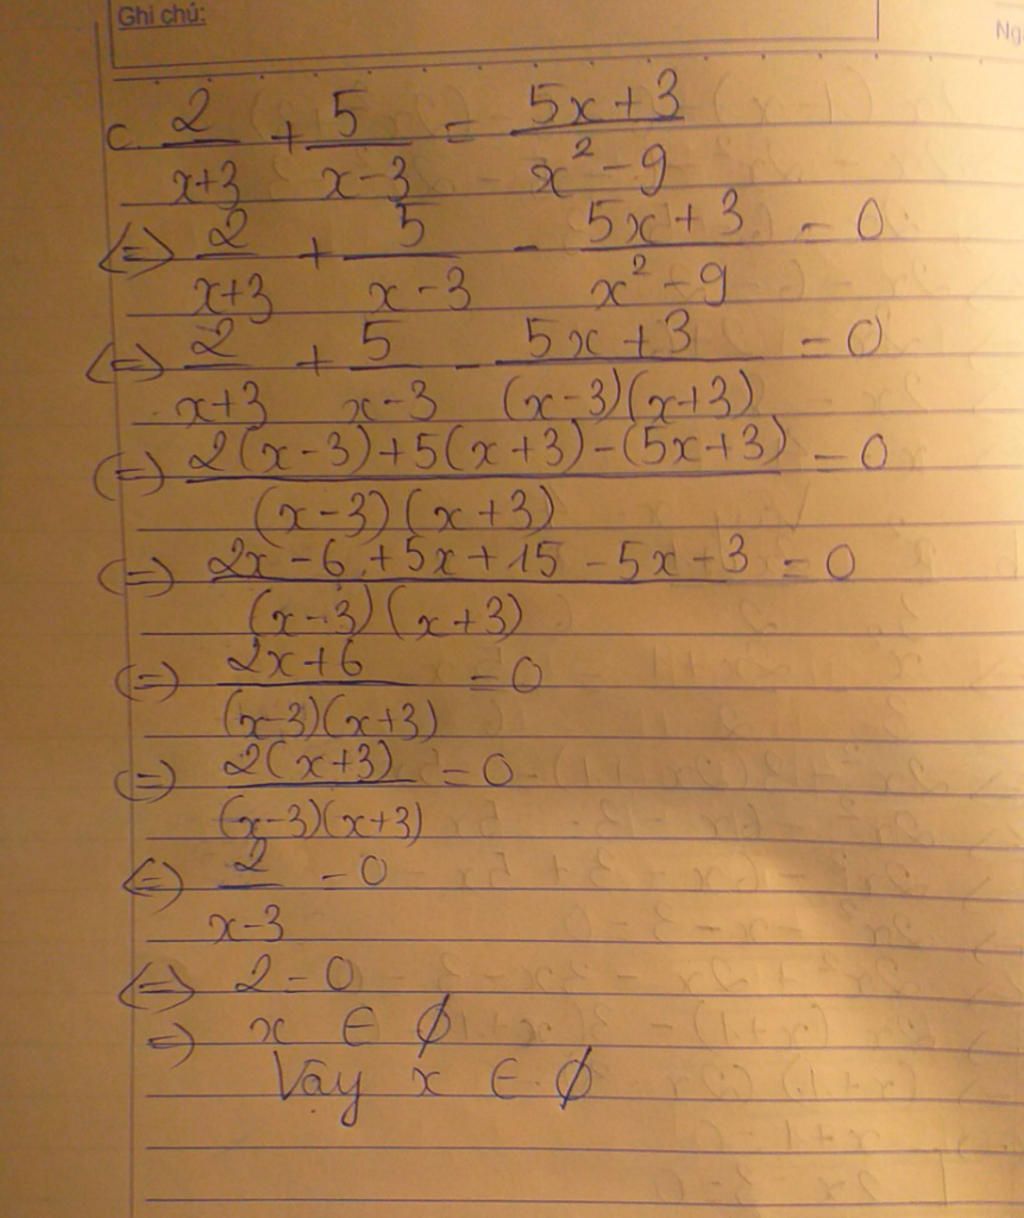 Ghi chú:
Ng
c. 2/(x+3) + 5/(x-3) = (5x+3)/(x²-9)
<=> 2/(x+3) + 5/(x-3) - (5x+3)/(x²-9) = 0
<=> 2/(x+3) + 5/(x-3) - (5x+3)/((x-3)(x+3)) = 0
(=) (2(x-3)+5(x+3)-(5x+3))/((x-3)(x+3)) = 0
(=) (2x-6+5x+15-5x+3)/((x-3)(x+3)) = 0
(=) (2x+6)/((x-3)(x+3)) = 0
(=) (2(x+3))/((x-3)(x+3)) = 0
<=> 2/(x-3) = 0
<=> 2=0
=> x ∈ ∅
Vây x ∈ ∅